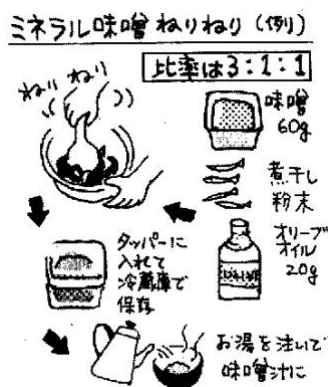 ミネラル味噌ねりねり（例）
比率は3:1:1
ねり ねり
味噌
60g
煮干し
粉末
オリーブ
オイル
20g
タッパーに
入れて
冷蔵庫で
保存
お湯を注いで
味噌汁に